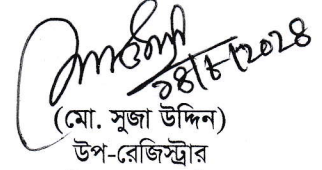 ১৪/৮/২০২৪
(মো. সুজা উদ্দিন)
উপ-রেজিস্ট্রার